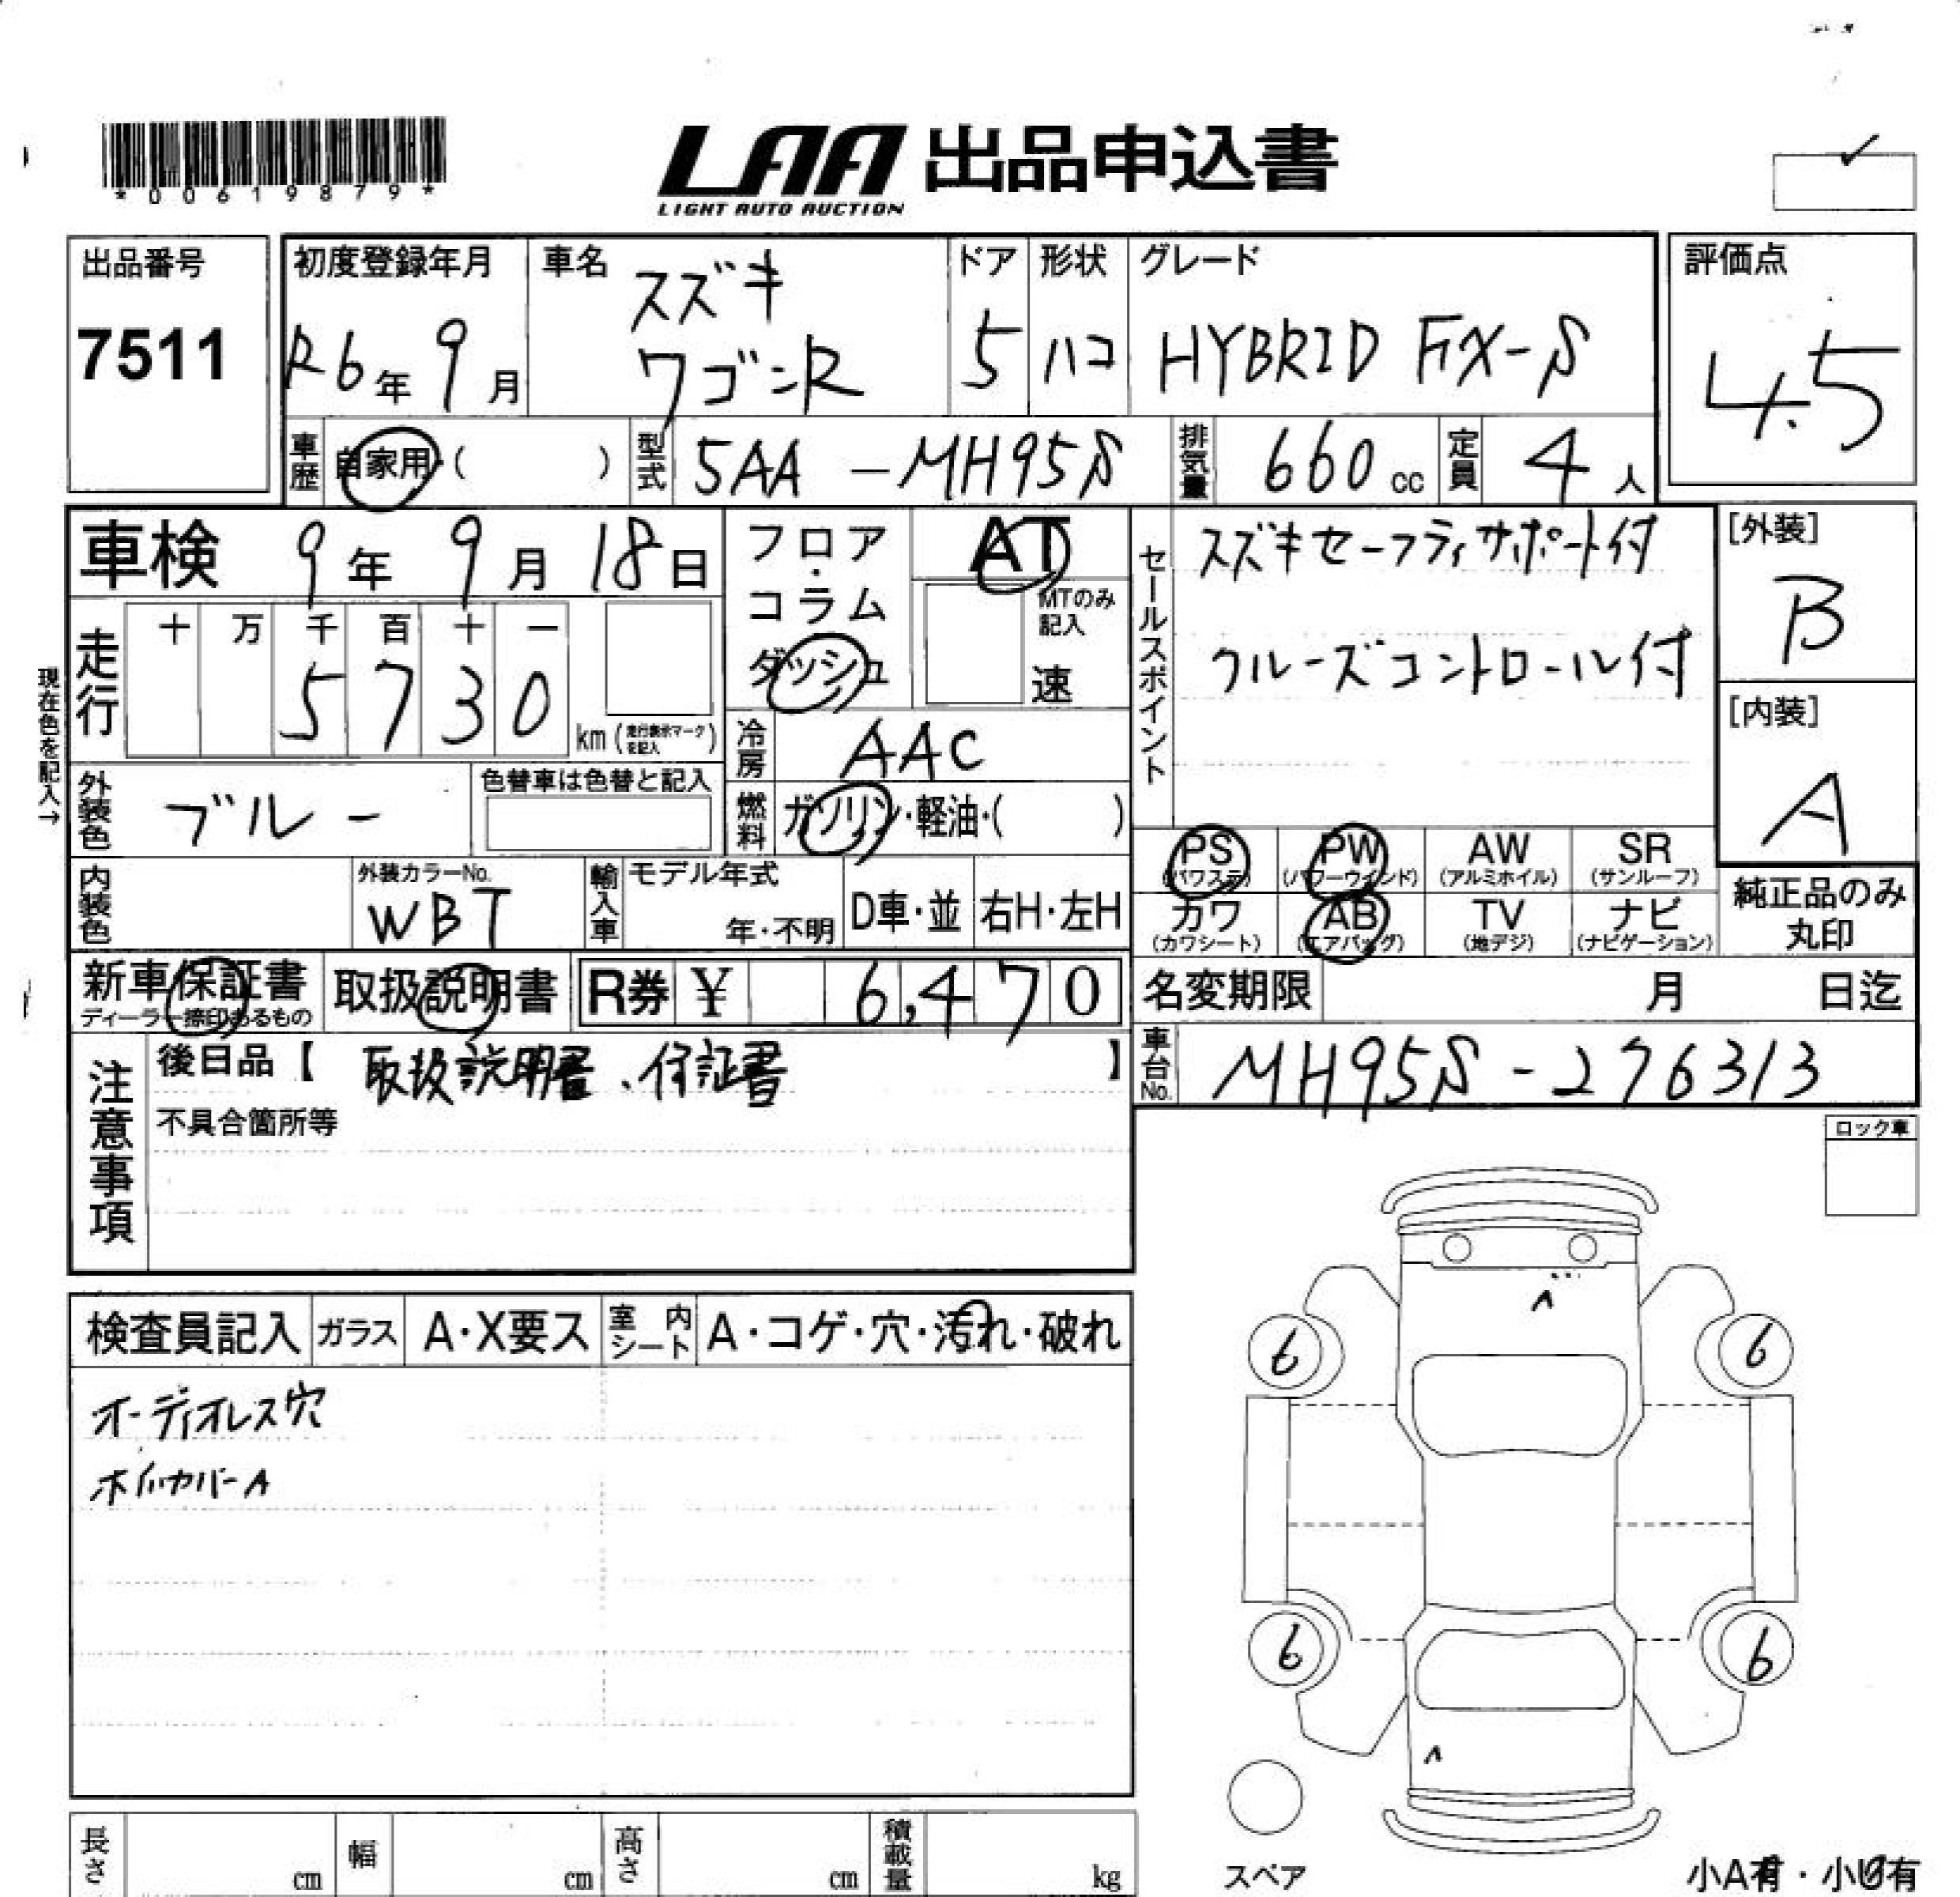 *00619879*
LAA 出品申込書
LIGHT AUTO AUCTION
出品番号
7511
初度登録年月
R6年 9月
車名
スズキ
ワゴンR
ドア
5
形状
ハコ
グレード
HYBRID FX-S
評価点
4.5
車歴
自家用・( )
型式
5AA-MH95S
排気量
660 cc
定員
4 人
車検 9年 9月 18日
走行
十 万 千 百 十 一
5 7 3 0
km (走行表示マークを記入)
現在色を記入→
フロア・
コラム
ダッシュ
AT
MTのみ記入
速
冷房
AAC
燃料
ガソリン・軽油・( )
外装色
ブルー
色替車は色替と記入
内装色
外装カラーNo.
WBT
輸入車
モデル年式
年・不明
D車・並
右H・左H
セールスポイント
スズキセーフティサポート付
クルーズコントロール付
[外装]
B
[内装]
A
PS
(パワステ)
PW
(パワーウィンド)
AW
(アルミホイル)
SR
(サンルーフ)
カワ
(カワシート)
AB
(エアバッグ)
TV
(地デジ)
ナビ
(ナビゲーション)
純正品のみ
丸印
新車保証書
ディーラー捺印あるもの
取扱説明書
R券 ¥ 6,470
名変期限 月 日迄
車台No.
MH95S-276313
注意事項
後日品【 取扱説明書、保証書 】
不具合箇所等
ロック車
検査員記入
ガラス
A・X要ス
室内シート
A・コゲ・穴・汚れ・破れ
オーディオレス穴
ホイルカバーA
6
6
6
6
スペア
小A有・小U有
長さ
cm
幅
cm
高さ
cm
積載量
kg